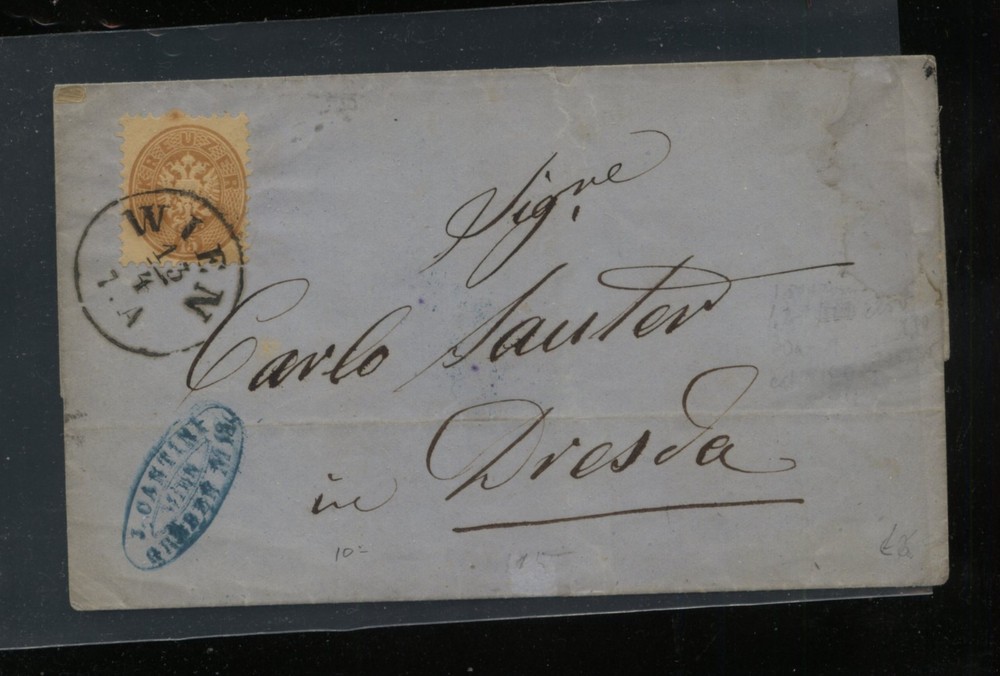 KREUZER
15
WIEN
13
4
7. A
Sigre
Carlo Sauter
in Dresda
J. CANTINI
WIEN
GRABEN
10=